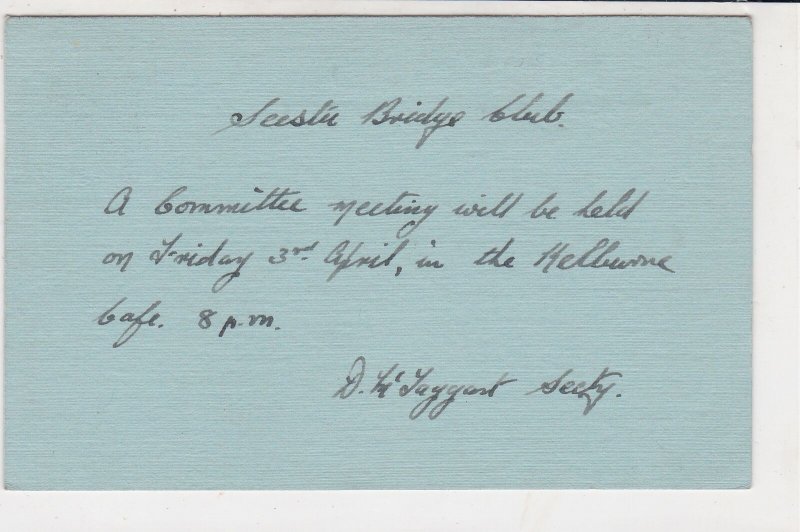 Seestu Bridge Club.
A Committee meeting will be held
on Friday 3rd April, in the Kelburne
Cafe. 8 p.m.
D. McTaggart Secty.